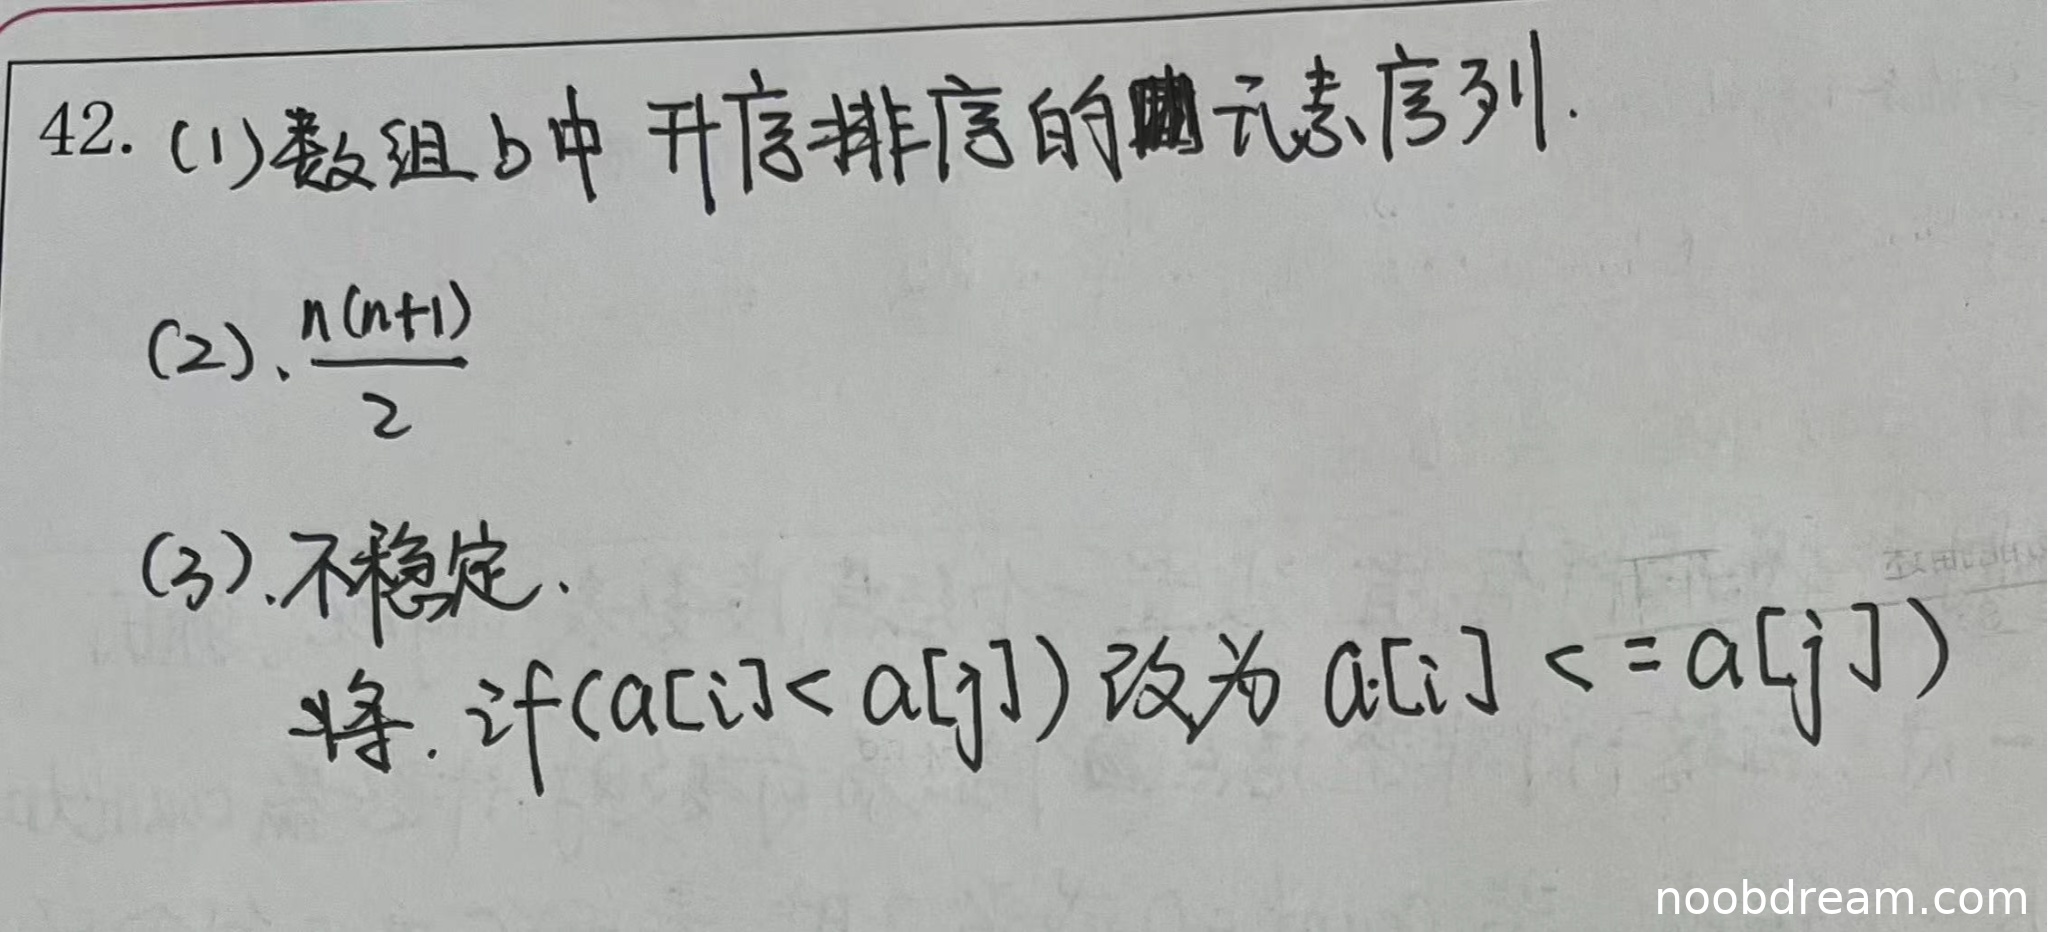 42. (1) 数组 b 中 升序排序的元素序列.
(2). n(n+1)/2
(3). 不稳定.
将. if(a[i]< a[j]) 改为 a[i] <= a[j])
noobdream.com